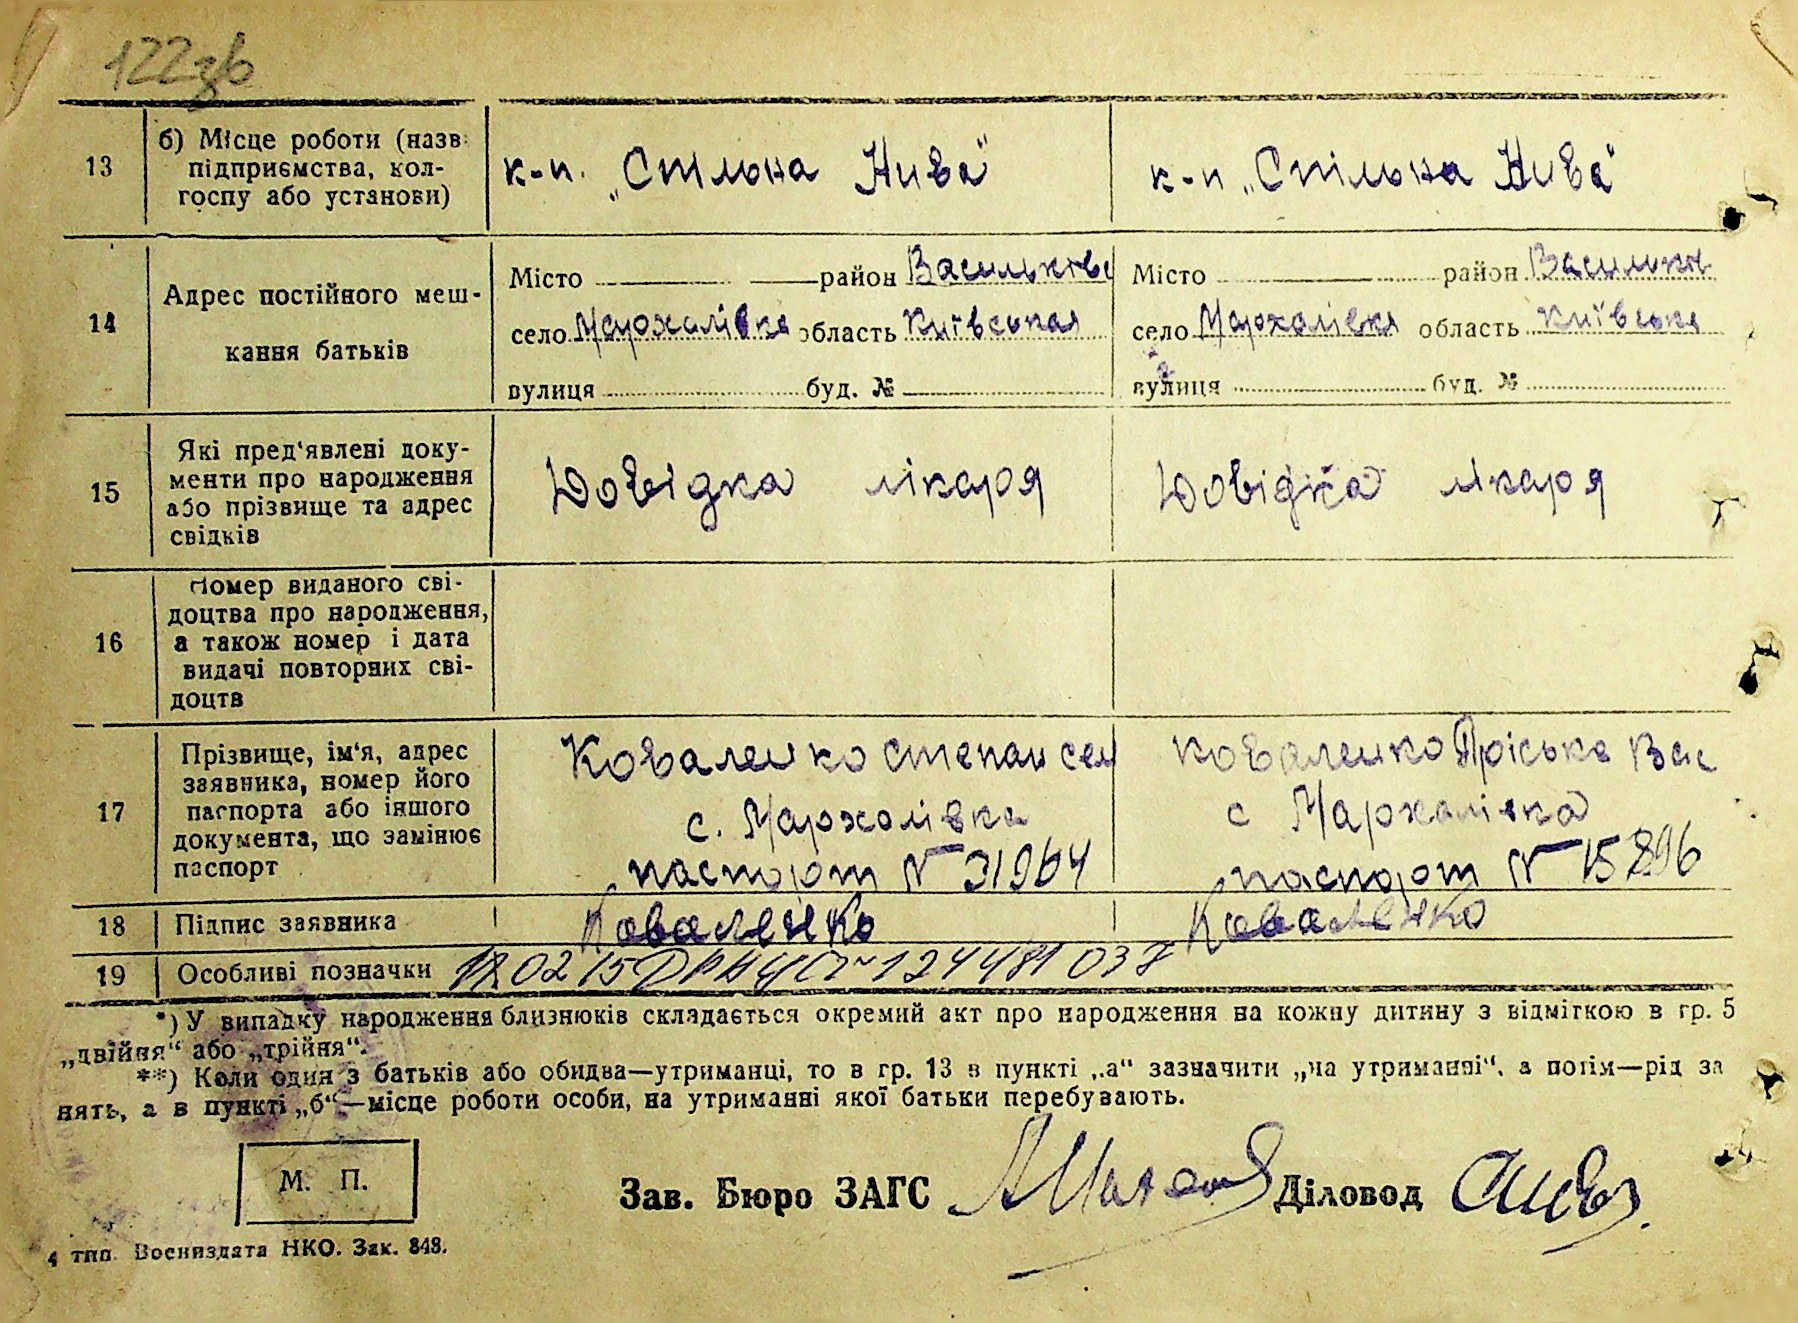 122зв
13 б) Місце роботи (назв
підприємства, кол-
госпу або установи)
к-п. „Спільна Нива"
к-п „Спільна Нива"
14 Адрес постійного меш-
кання батьків
Місто район Васильківс
село Мархалівка область Київськая
вулиця буд. №
Місто район Васильків
село Мархалівка область Київська
вулиця буд. №
15 Які пред'явлені доку-
менти про народження
або прізвище та адрес
свідків
Довідка лікаря
Довідка лікаря
16 Номер виданого сві-
доцтва про народження,
а також номер і дата
видачі повторних сві-
доцтв
17 Прізвище, ім'я, адрес
заявника, номер його
паспорта або іншого
документа, що замінює
паспорт
Коваленко Степан сем
с. Мархалівка
паспорт N 31964
Коваленко Пріська Вас
с Мархалівка
паспорт N 15896
18 Підпис заявника Коваленко Коваленко
19 Особливі позначки 02 15 124481 037
*) У випадку народження близнюків складається окремий акт про народження на кожну дитину з відміткою в гр. 5
„двійня" або „трійня".
**) Коли один з батьків або обидва—утриманці, то в гр. 13 в пункті „а" зазначити „на утриманні", а потім—рід за
нять, а в пункті „б"—місце роботи особи, на утриманні якої батьки перебувають.
М. П.
Зав. Бюро ЗАГС Діловод
4 тип. Воениздата НКО. Зак. 848.